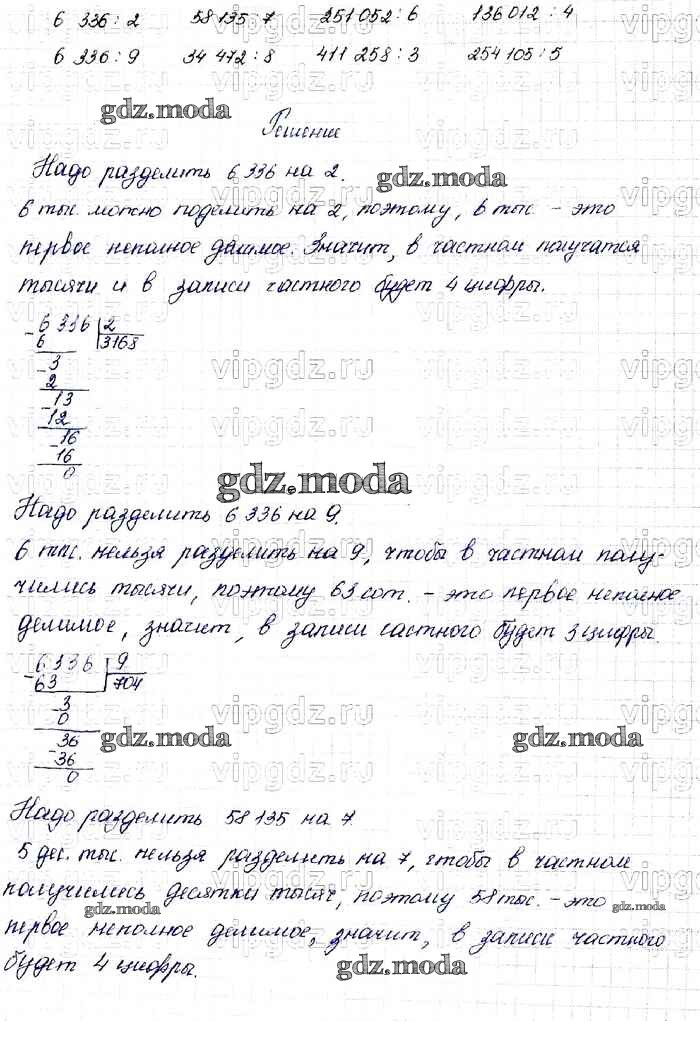 6 336 : 2 58 135 : 7 251 052 : 6 136 012 : 4
6 336 : 9 34 472 : 8 411 258 : 3 254 105 : 5
gdz.moda
Решение
Надо разделить 6 336 на 2.
gdz.moda
6 тыс. можно поделить на 2, поэтому, 6 тыс. - это
первое неполное делимое. Значит, в частном получатся
тысячи и в записи частного будет 4 цифры.
- 6 336 | 2
6 3168
- 3
2
- 13
12
- 16
16
0
gdz.moda
Надо разделить 6 336 на 9.
6 тыс. нельзя разделить на 9, чтобы в частном полу-
чились тысячи, поэтому 63 сот. - это первое неполное
делимое, значит, в записи частного будет 3 цифры.
- 6 336 | 9
63 704
- 3
0
- 36
36
0
gdz.moda gdz.moda
Надо разделить 58 135 на 7
5 дес. тыс. нельзя разделить на 7, чтобы в частном
получились десятки тысяч, поэтому 58 тыс. - это
gdz.moda gdz.moda
первое неполное делимое, значит, в записи частного
будет 4 цифры.
gdz.moda
vipgdz.ru